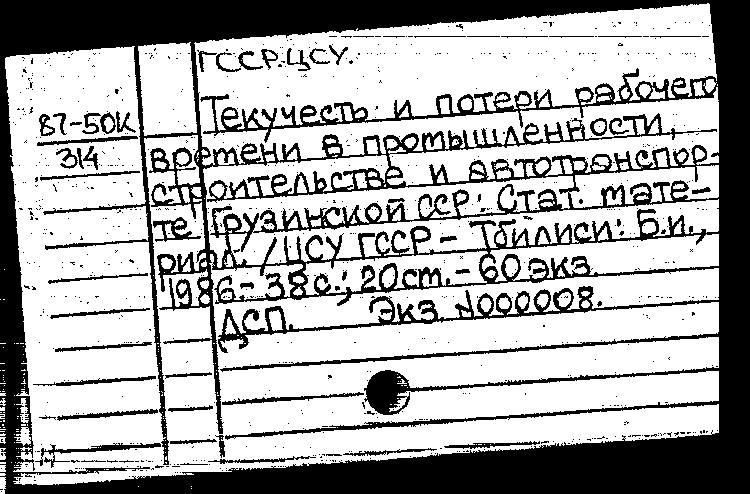 ГССР. ЦСУ.
87-50К
314
Текучесть и потери рабочего
времени в промышленности,
строительстве и автотранспор-
те Грузинской ССР: Стат. мате-
риал. / ЦСУ ГССР. – Тбилиси: Б.и.,
1986.- 38 с.; 20 см. - 60 экз.
ДСП. Экз. №000008.